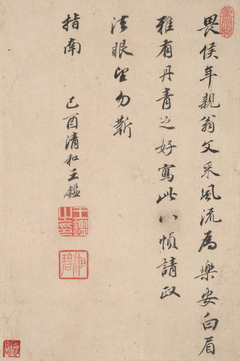 畏侯年親翁文采風流為樂安白眉
雅有丹青之好寫此小幀請政
法眼望勿靳
指南
己酉清和王鑑